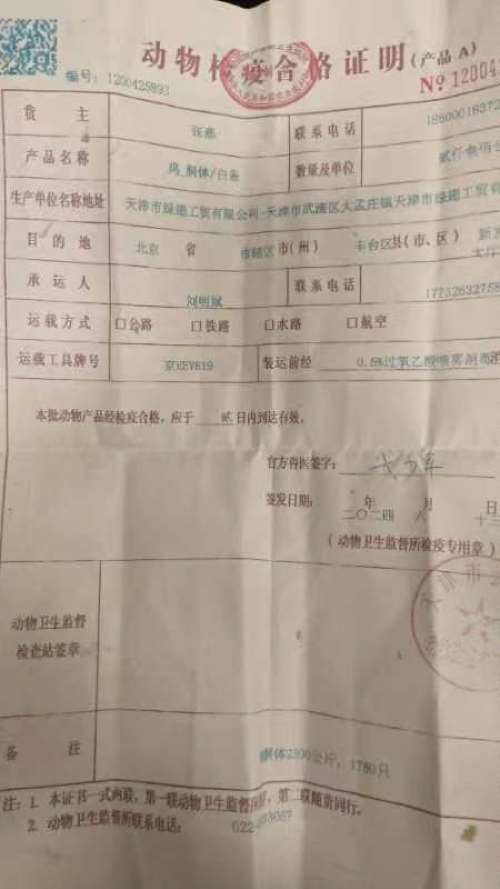 动物检疫合格证明(产品 A)
编号: 1200425893
№ 12004
货 主
联系电话
产品名称
鸡 胴体/白条
数量及单位
生产单位名称地址
天津市绿通工贸有限公司-天津市武清区大孟庄镇天津市绿通工贸有
目 的 地
北京 省 市辖区 市(州) 丰台区县(市、区)
承 运 人
刘明斌
联系电话
1775263275
运载方式
□公路 □铁路 □水路 □航空
运载工具牌号
装运前经
0.5%过氧乙酸喷雾剂
本批动物产品经检疫合格,应于 贰 日内到达有效。
官方兽医签字:
签发日期: 二〇二四 年 八 月 十 日
(动物卫生监督所检疫专用章)
动物卫生监督
检查站签章
备 注
胴体2300公斤, 1780只
注: 1. 本证书一式两联,第一联动物卫生监督所留存,第二联随货同行。
2. 动物卫生监督所联系电话: 022-